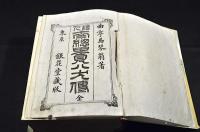 曲亭馬琴翁著
南總里見八犬傳 全
東京 銀花堂藏版